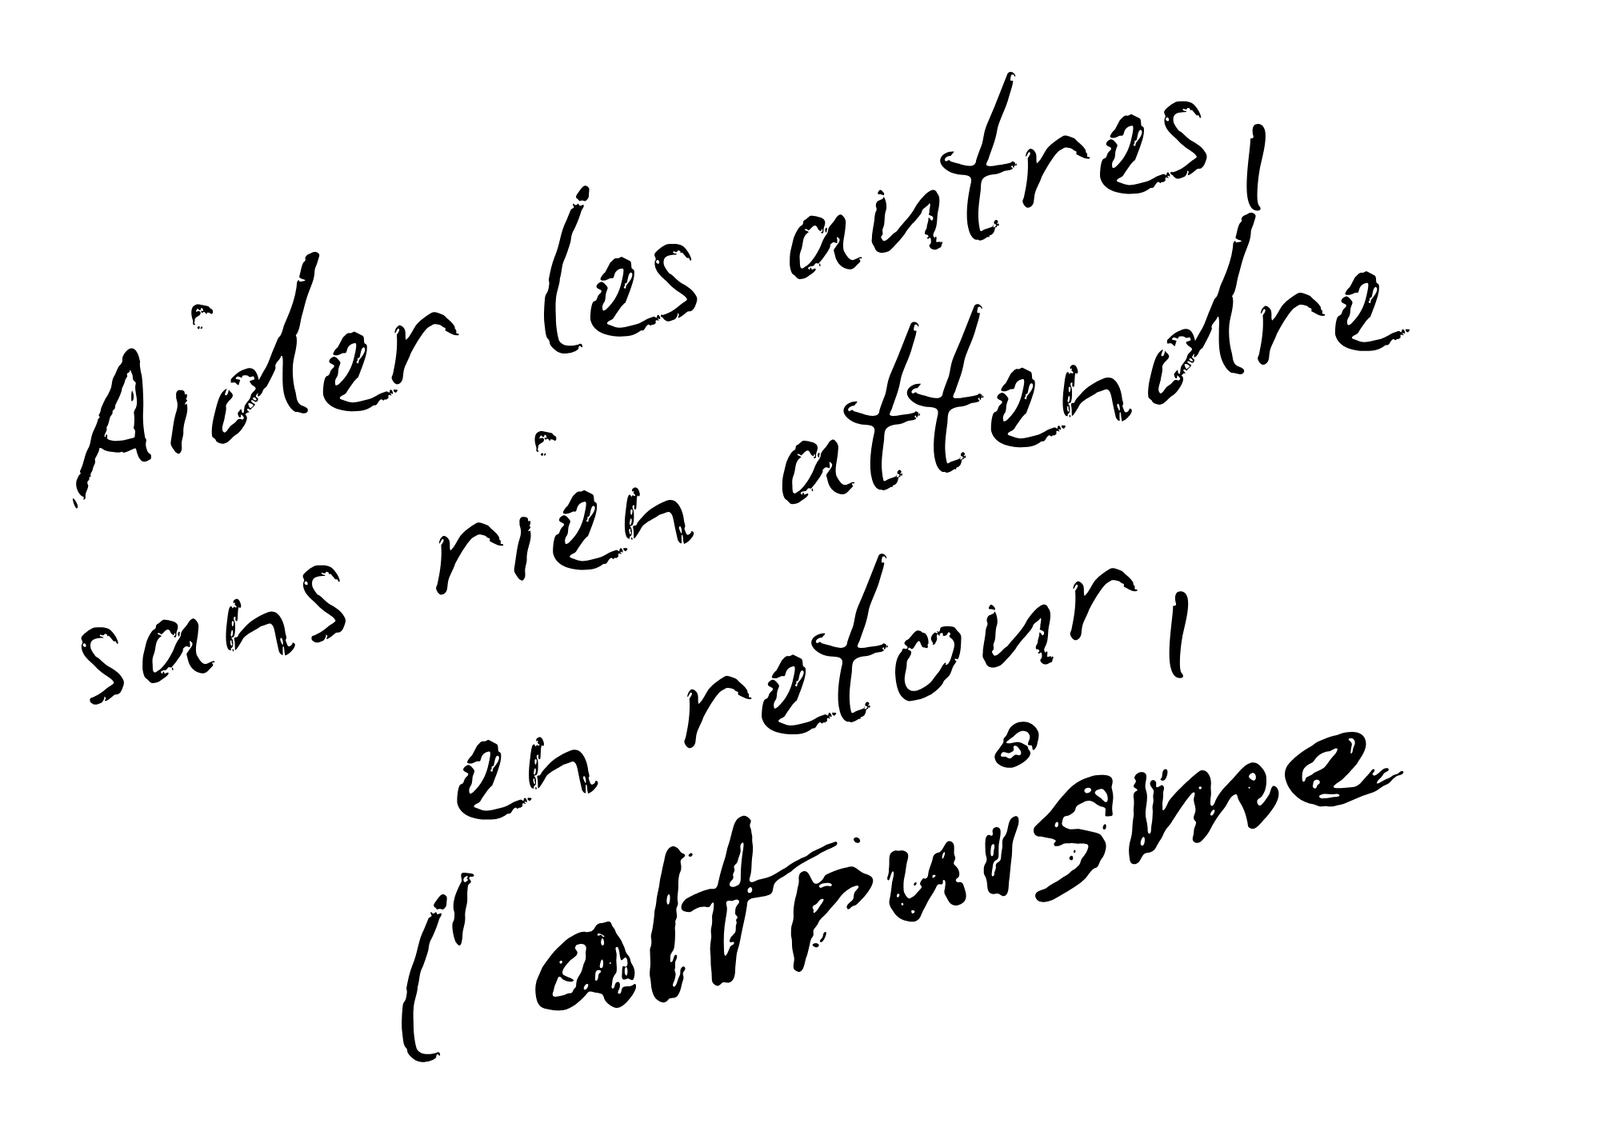 Aider les autres,
sans rien attendre
en retour,
l'altruisme